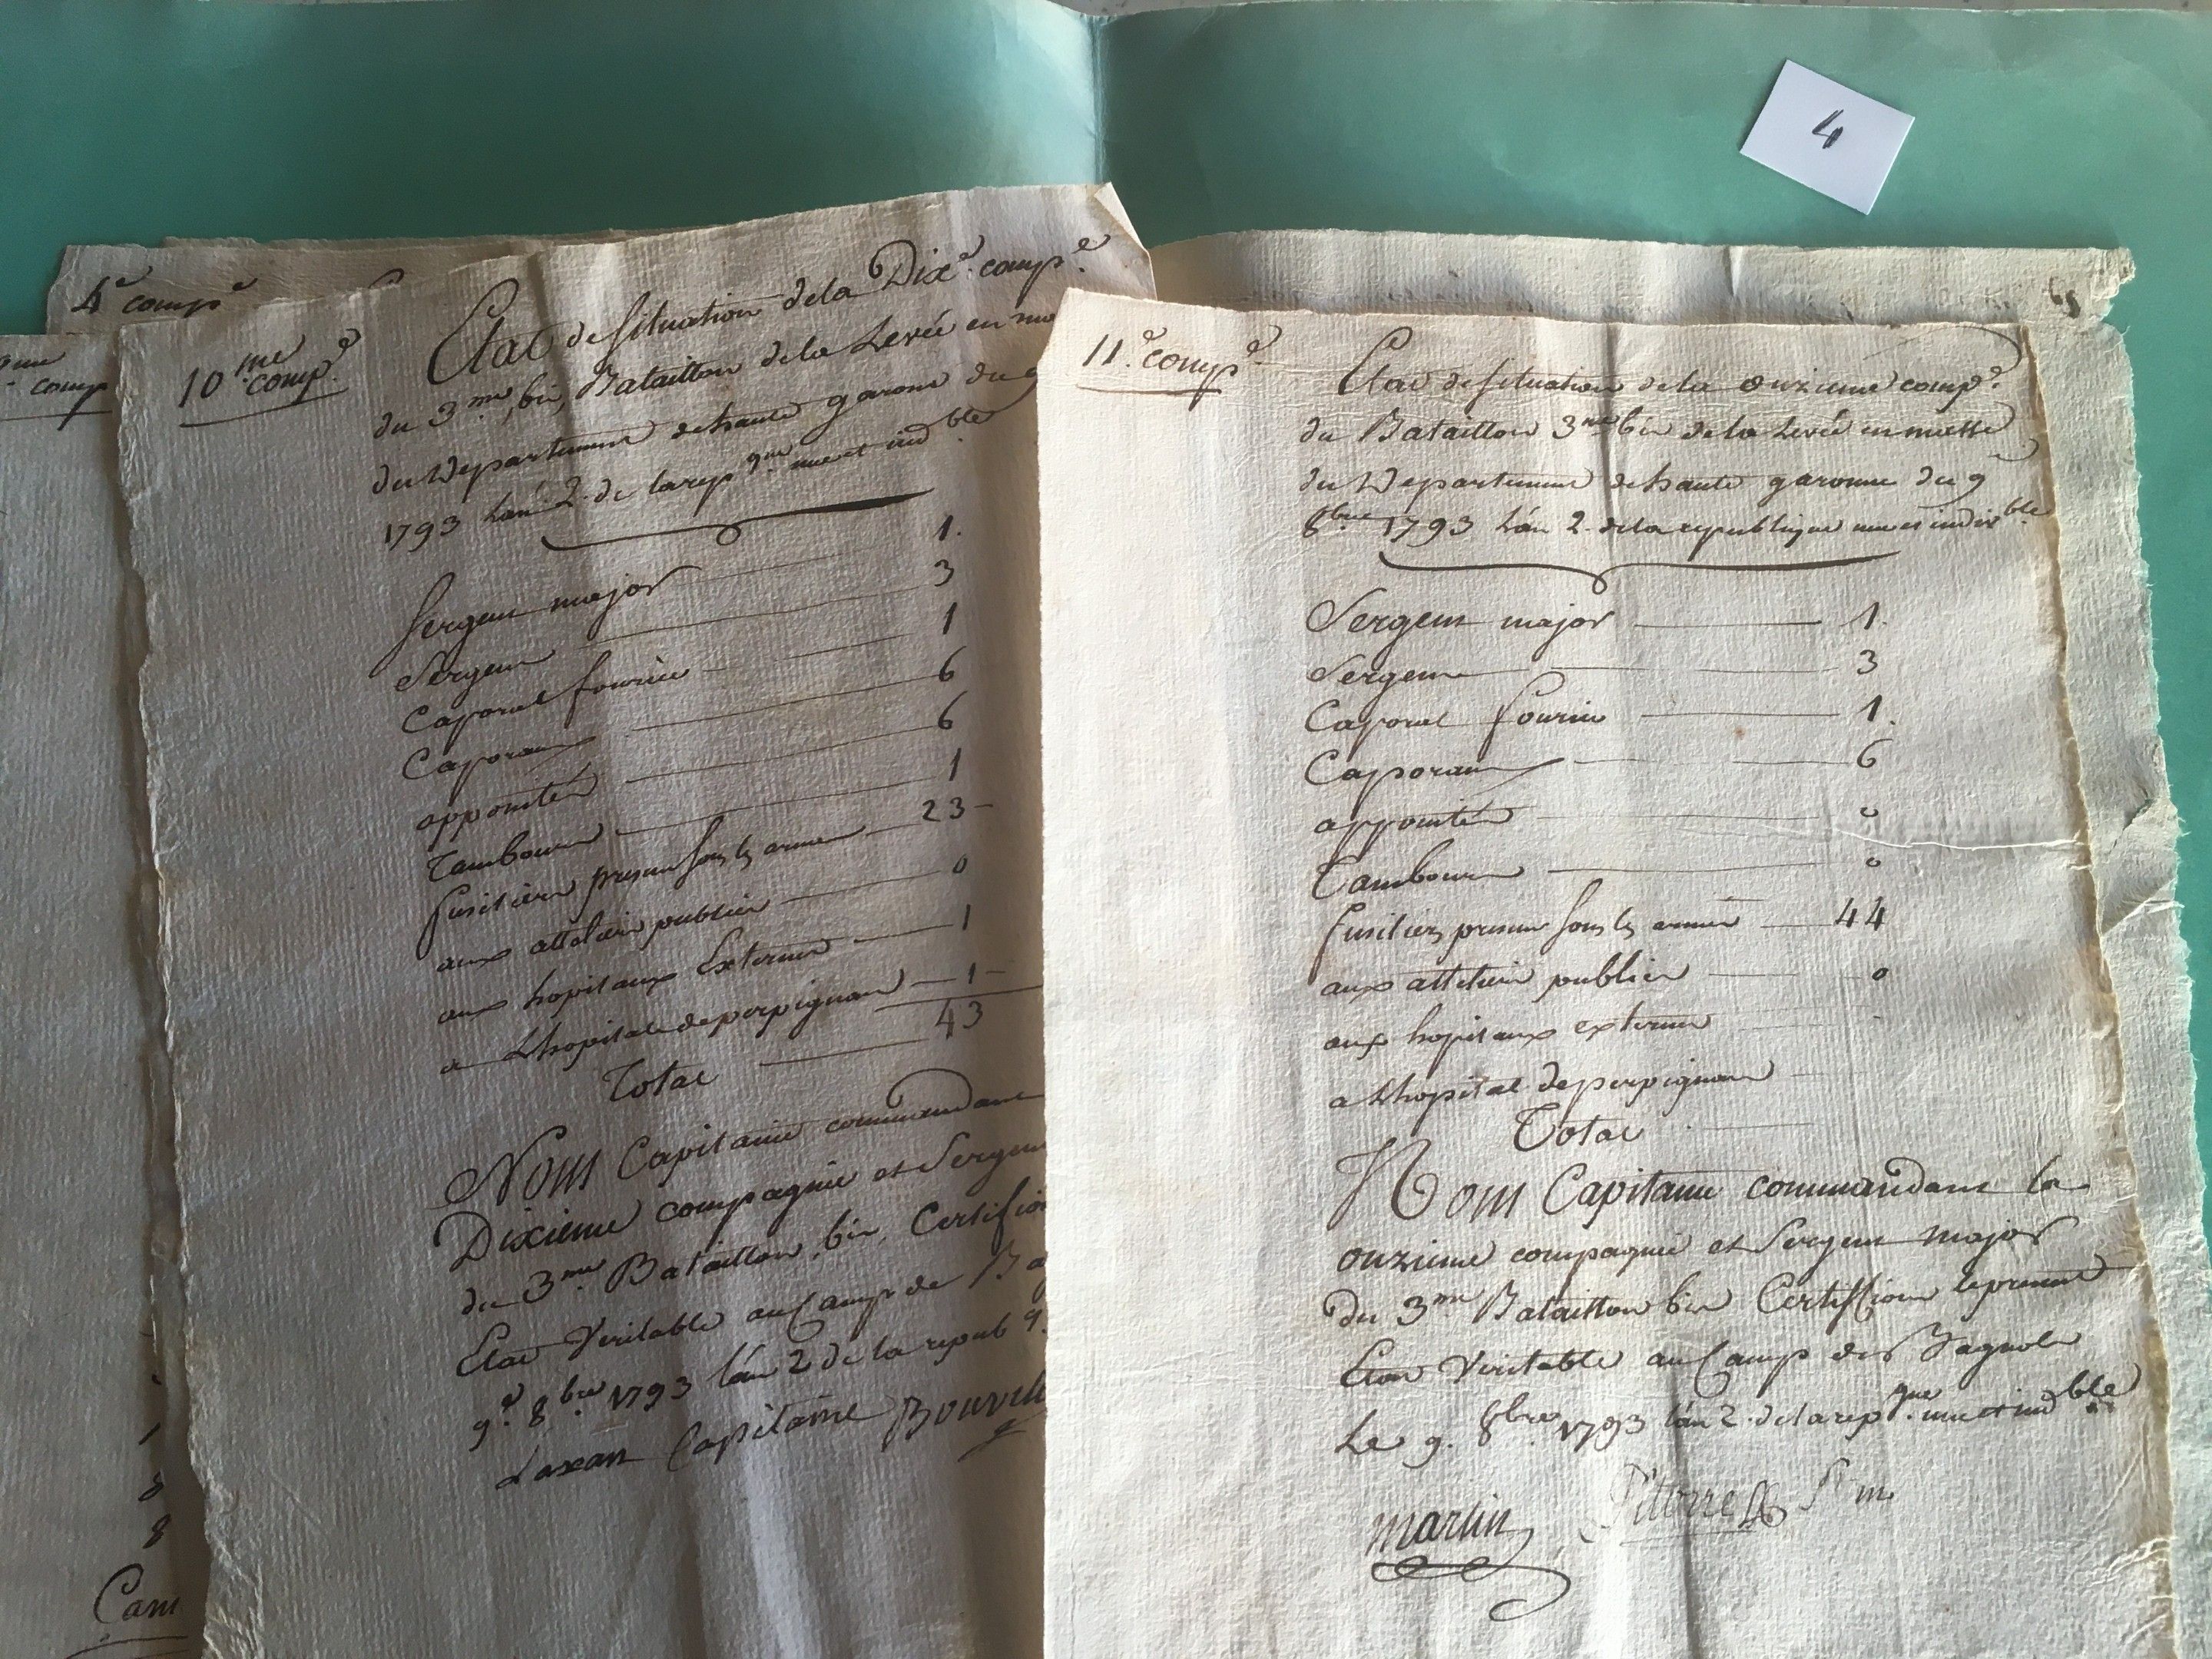 4
4e compe
me
comp
10me compe.
Etat de situation de la Dixe. compe.
du 3me, bis, Bataillon de la Levée en ma
du Departement de haute garonne du 9
1793 L'an 2. de la repque. une et indble.
Sergent major 1.
Sergent 3
Caporal fourier 1
Caporaux 6
appointés 6
Tambours 1
fusiliers present sous les armes 23
aux attéliers publics 0
aux hopitaux Externes 1
a Lhopital de perpignan 1
Total 43
Nous Capitaine commandant
Dixieme compagnie et Sergent
du 3me. Bataillon, bis, Certifion
Etat Veritable au Camp de Ba
9e. 8bre 1793 l'an 2 de la repubq.
Laxan Capitaine Bourrill
1
8
8
Cam
11e. compe.
Etat de situation de la onzieme compe.
du Bataillon 3me bis de la Levée en masse
du Departement de haute garonne du 9
8bre 1793 L'an 2. de la republique une et indivble.
Sergent major 1.
Sergent 3
Caporal fourier 1.
Caporaux 6
appointés 0
Tambours 0
fusiliers present sous les armes 44
aux attéliers publics 0
aux hopitaux externes
a Lhopital de perpignan
Total
Nous Capitaine commandant la
onzieme compagnie et Sergent major
Du 3me Bataillon bis Certiffions le present
Etat Veritable au Camp des Bagnols
Le 9. 8bre. 1793 l'an 2. de la repque. une et indble.
martin Pitorre St m